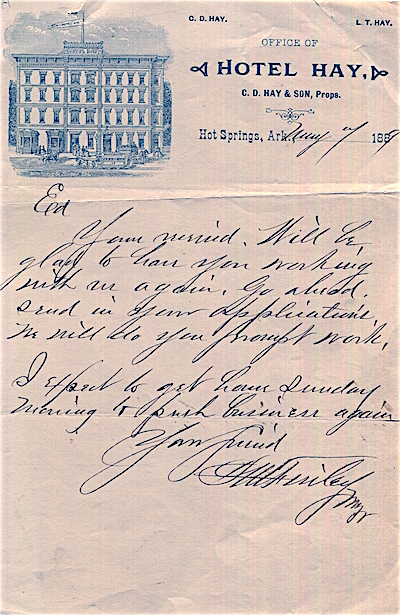 C. D. HAY.
L. T. HAY.
HOTEL HAY
OFFICE OF
HOTEL HAY,
C. D. HAY & SON, Props.
Hot Springs, Ark. 7 1889
Ed
Yours received. Will be
glad to have you working
with us again. Go ahead.
send in your applications.
We will do you prompt work.
I expect to get home Sunday
morning to push business again
Your friend